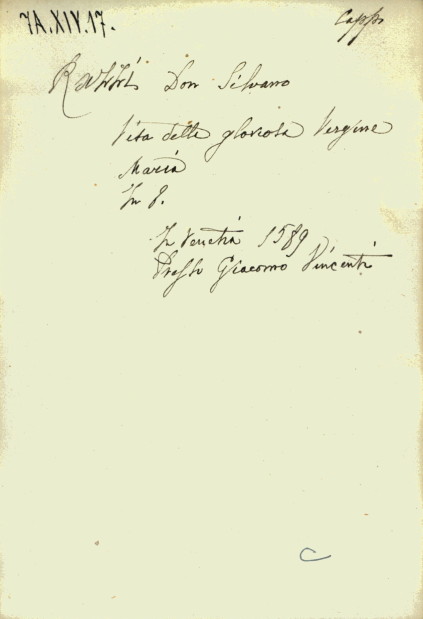 7A.XIV.17.
Capps
Razzi Don Silvano
Vita della gloriosa Vergine
Maria
In 8.
In Venetia 1589
Presso Giacomo Vincenti
C